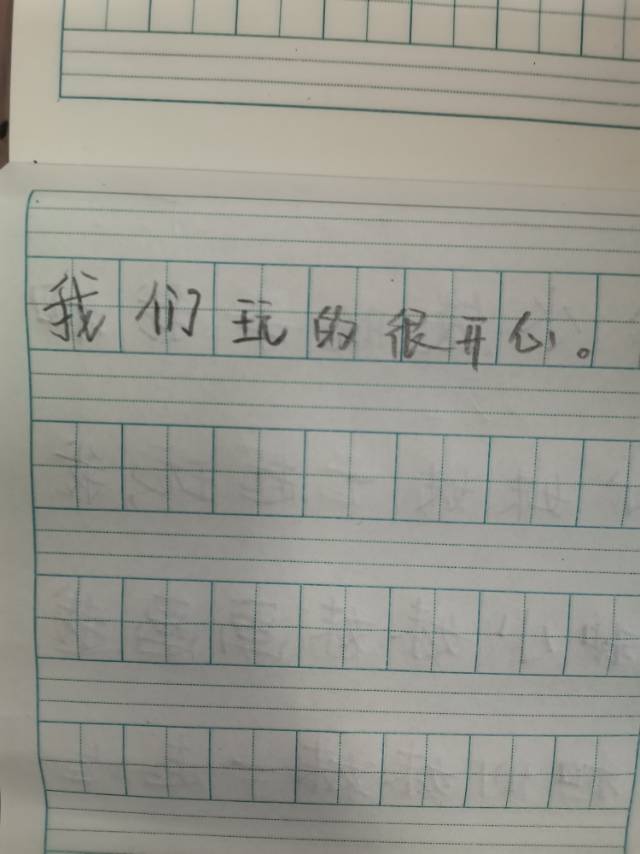 我们玩的很开心。